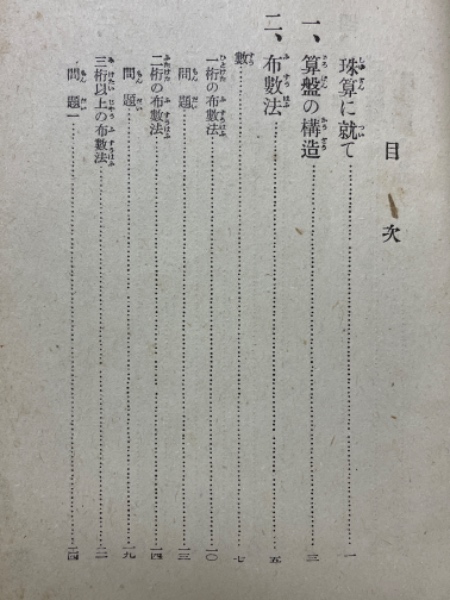 目次
珠算に就て……一
一、算盤の構造……三
二、布數法……五
數……七
一桁の布數法……一〇
問題……一三
二桁の布數法……一四
問題……一九
三桁以上の布數法……二二
問題一……二四